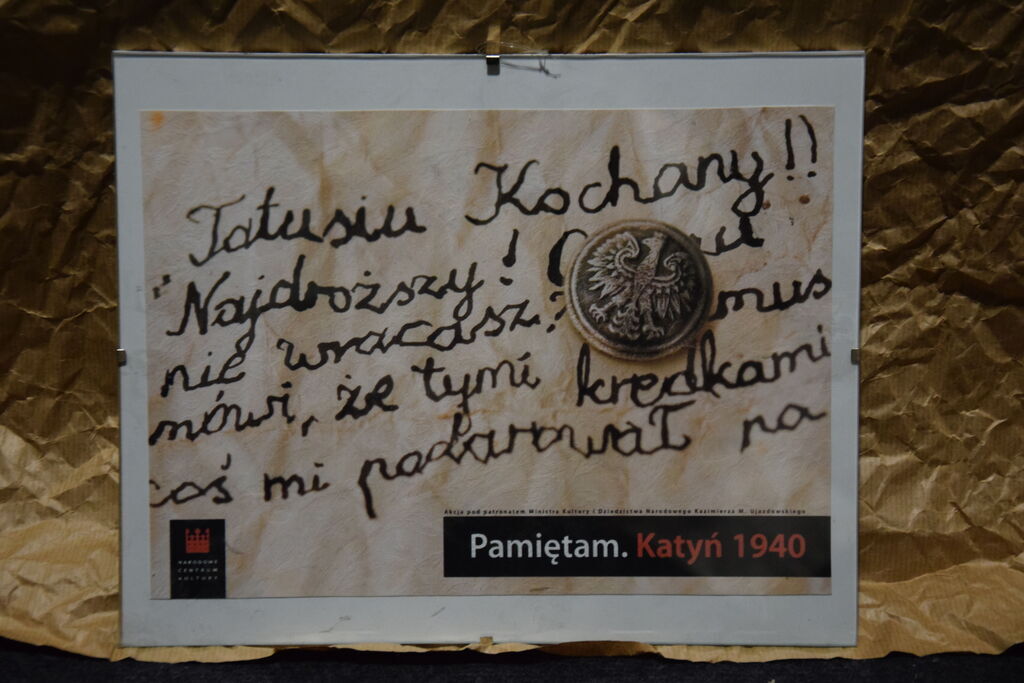 Tatusiu Kochany!!
Najdroższy!
nie wracasz?
mówi, że tymi kredkami
coś mi podarował na
Akcja pod patronatem Ministra Kultury i Dziedzictwa Narodowego Kazimierza M. Ujazdowskiego
Pamiętam. Katyń 1940
NARODOWE
CENTRUM
KULTURY